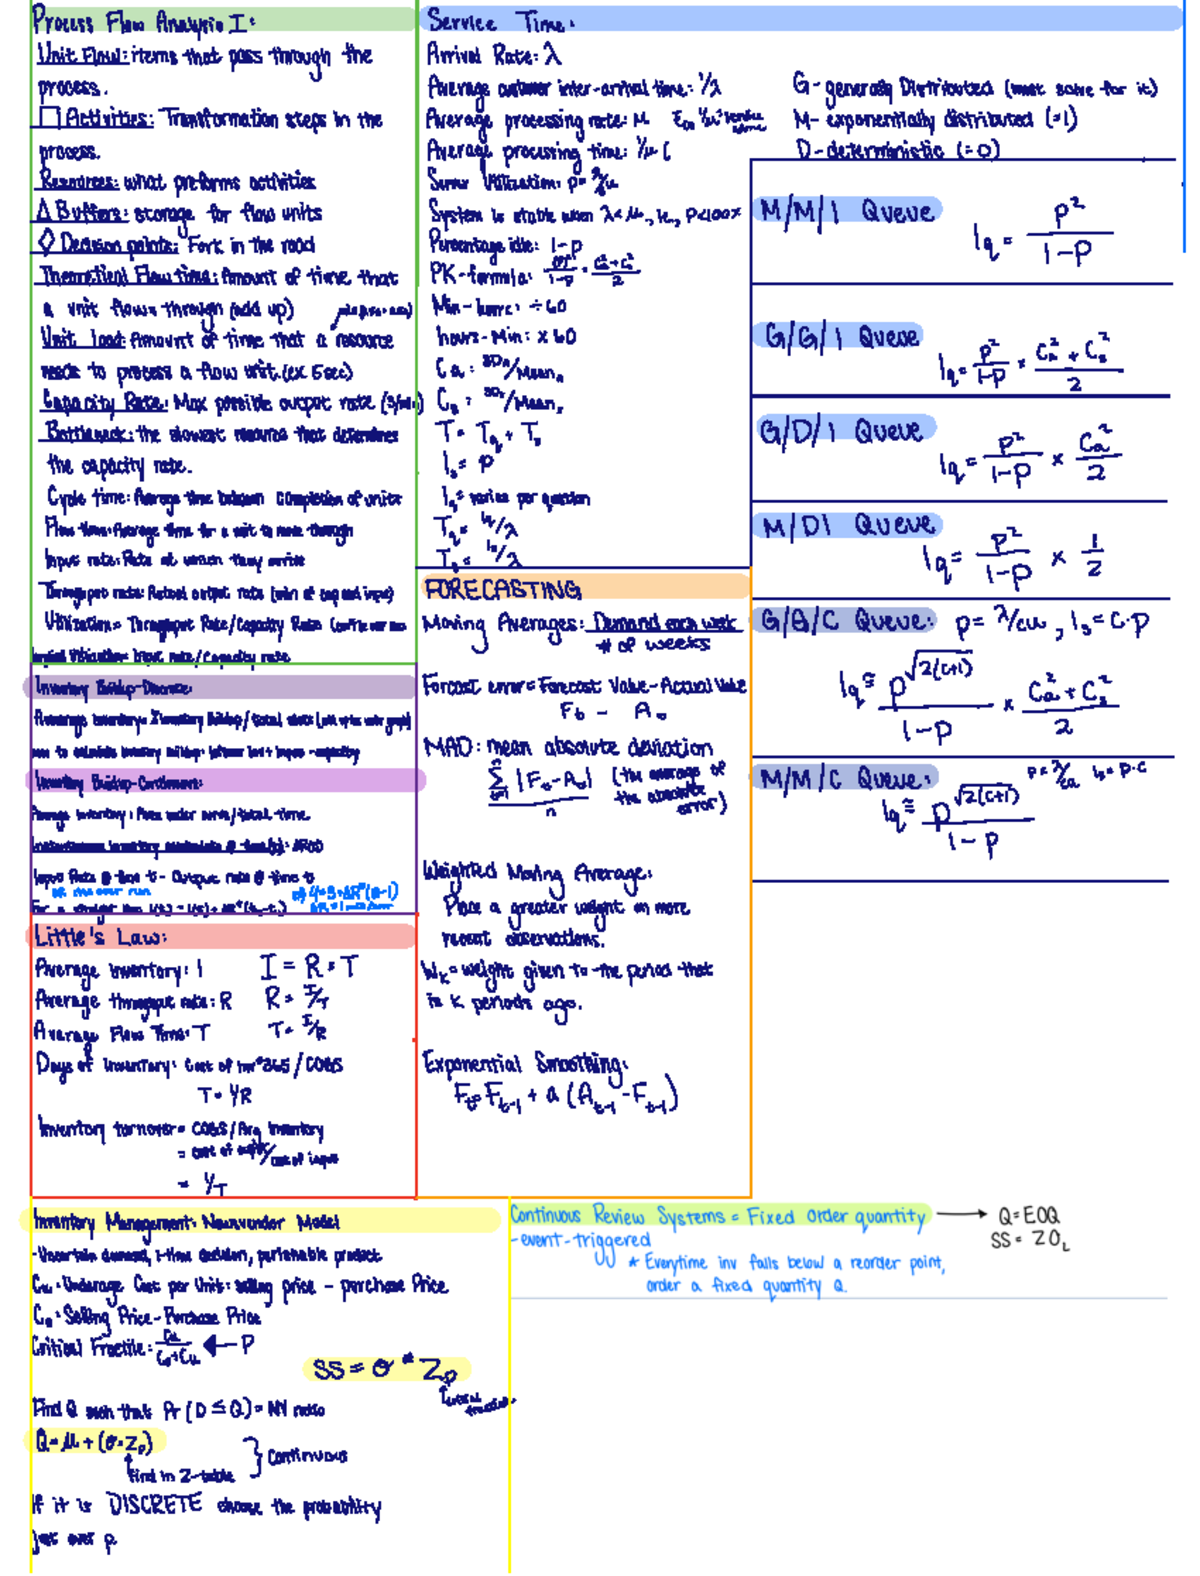 Process Flow Analysis I:
Unit Flow: items that pass through the
process.
Activities: Transformation steps in the
process.
Resources: what preforms activities
Δ Buffers: storage for flow units
◇ Decision points: Fork in the road
Theoretical Flow time: Amount of time that
a unit flows through (add up)
Unit load: Amount of time that a resource
needs to process a flow unit. (ex 5sec)
Capacity Rate: Max possible output rate
Bottleneck: the slowest resource that determines
the capacity rate.
Cycle time: Average time between completion of units
Flow time: Average time for a unit to move through
Input rate: Rate at which they arrive
Throughput rate: Actual output rate (min of cap and input)
Utilization = Throughput Rate/Capacity Rate
Implied Utilization = Input rate/capacity rate
Inventory Buildup-Discrete:
Inventory Buildup-Continuous:
Average inventory: Area under curve/total time.
Input Rate @ time t - Output rate @ time t
Little's Law:
Average inventory: I I = R * T
Average throughput rate: R R = I/T
Average Flow Time: T T = I/R
Days of Inventory: Cost of inv*365/COGS
T = 1/R
Inventory turnover = COGS/Avg Inventory
= 1/T
Service Time:
Arrival Rate: λ
Average customer inter-arrival time: 1/λ
Average processing rate: μ
Average processing time: 1/μ (
Server Utilization: p = λ/μ
System is stable when λ<μ, ie, p<100%
Percentage idle: 1-p
PK-formula:
Min-hours: ÷60
hours-Min: x60
Ca = SDa/Meana
Cs = SDs/Means
T = Tq + Ts
Is = p
Iq = varies per question
Tq = Iq/λ
Ts = Is/λ
G- generally Distributed (must solve for it)
M- exponentially distributed (=1)
D-deterministic (=0)
M/M/1 Queue Iq = p²/(1-p)
G/G/1 Queue Iq = p²/(1-p) × (Ca² + Cs²)/2
G/D/1 Queue Iq = p²/(1-p) × Ca²/2
M/D1 Queue Iq = p²/(1-p) × 1/2
G/G/C Queue: p = λ/cu, Is = C·p
Iq ≅ p^√2(c+1)/(1-p) × (Ca² + Cs²)/2
M/M/C Queue: p = λ/cu Is = p·c
Iq ≅ p^√2(c+1)/(1-p)
FORECASTING
Moving Averages: Demand each week
# of weeks
Forcast error = Forecast Value - Actual Value
Ft - At
MAD: mean absolute deviation
Σ |Ft - At| (the average of
n the absolute
error)
Weighted Moving Average:
Place a greater weight on more
recent observations.
Wk = weight given to the period that
is k periods ago.
Exponential Smoothing:
Ft = Ft-1 + a (At-1 - Ft-1)
Inventory Management: Newsvendor Model
-Uncertain demand, 1-time decision, perishable product
Cu = Underage Cost per Unit: selling price - purchase Price
Co = Selling Price - Purchase Price
Critical Fractile: Cu/(Co+Cu) ← P
SS = σ * Zp
Find Q such that Pr (D ≤ Q) = NV ratio
Q = μ + (σ·Zp)
find in Z-table } Continuous
If it is DISCRETE choose the probability
just over p.
Continuous Review Systems = Fixed Order quantity → Q = EOQ
-event-triggered SS = ZσL
* Everytime inv falls below a reorder point,
order a fixed quantity Q.